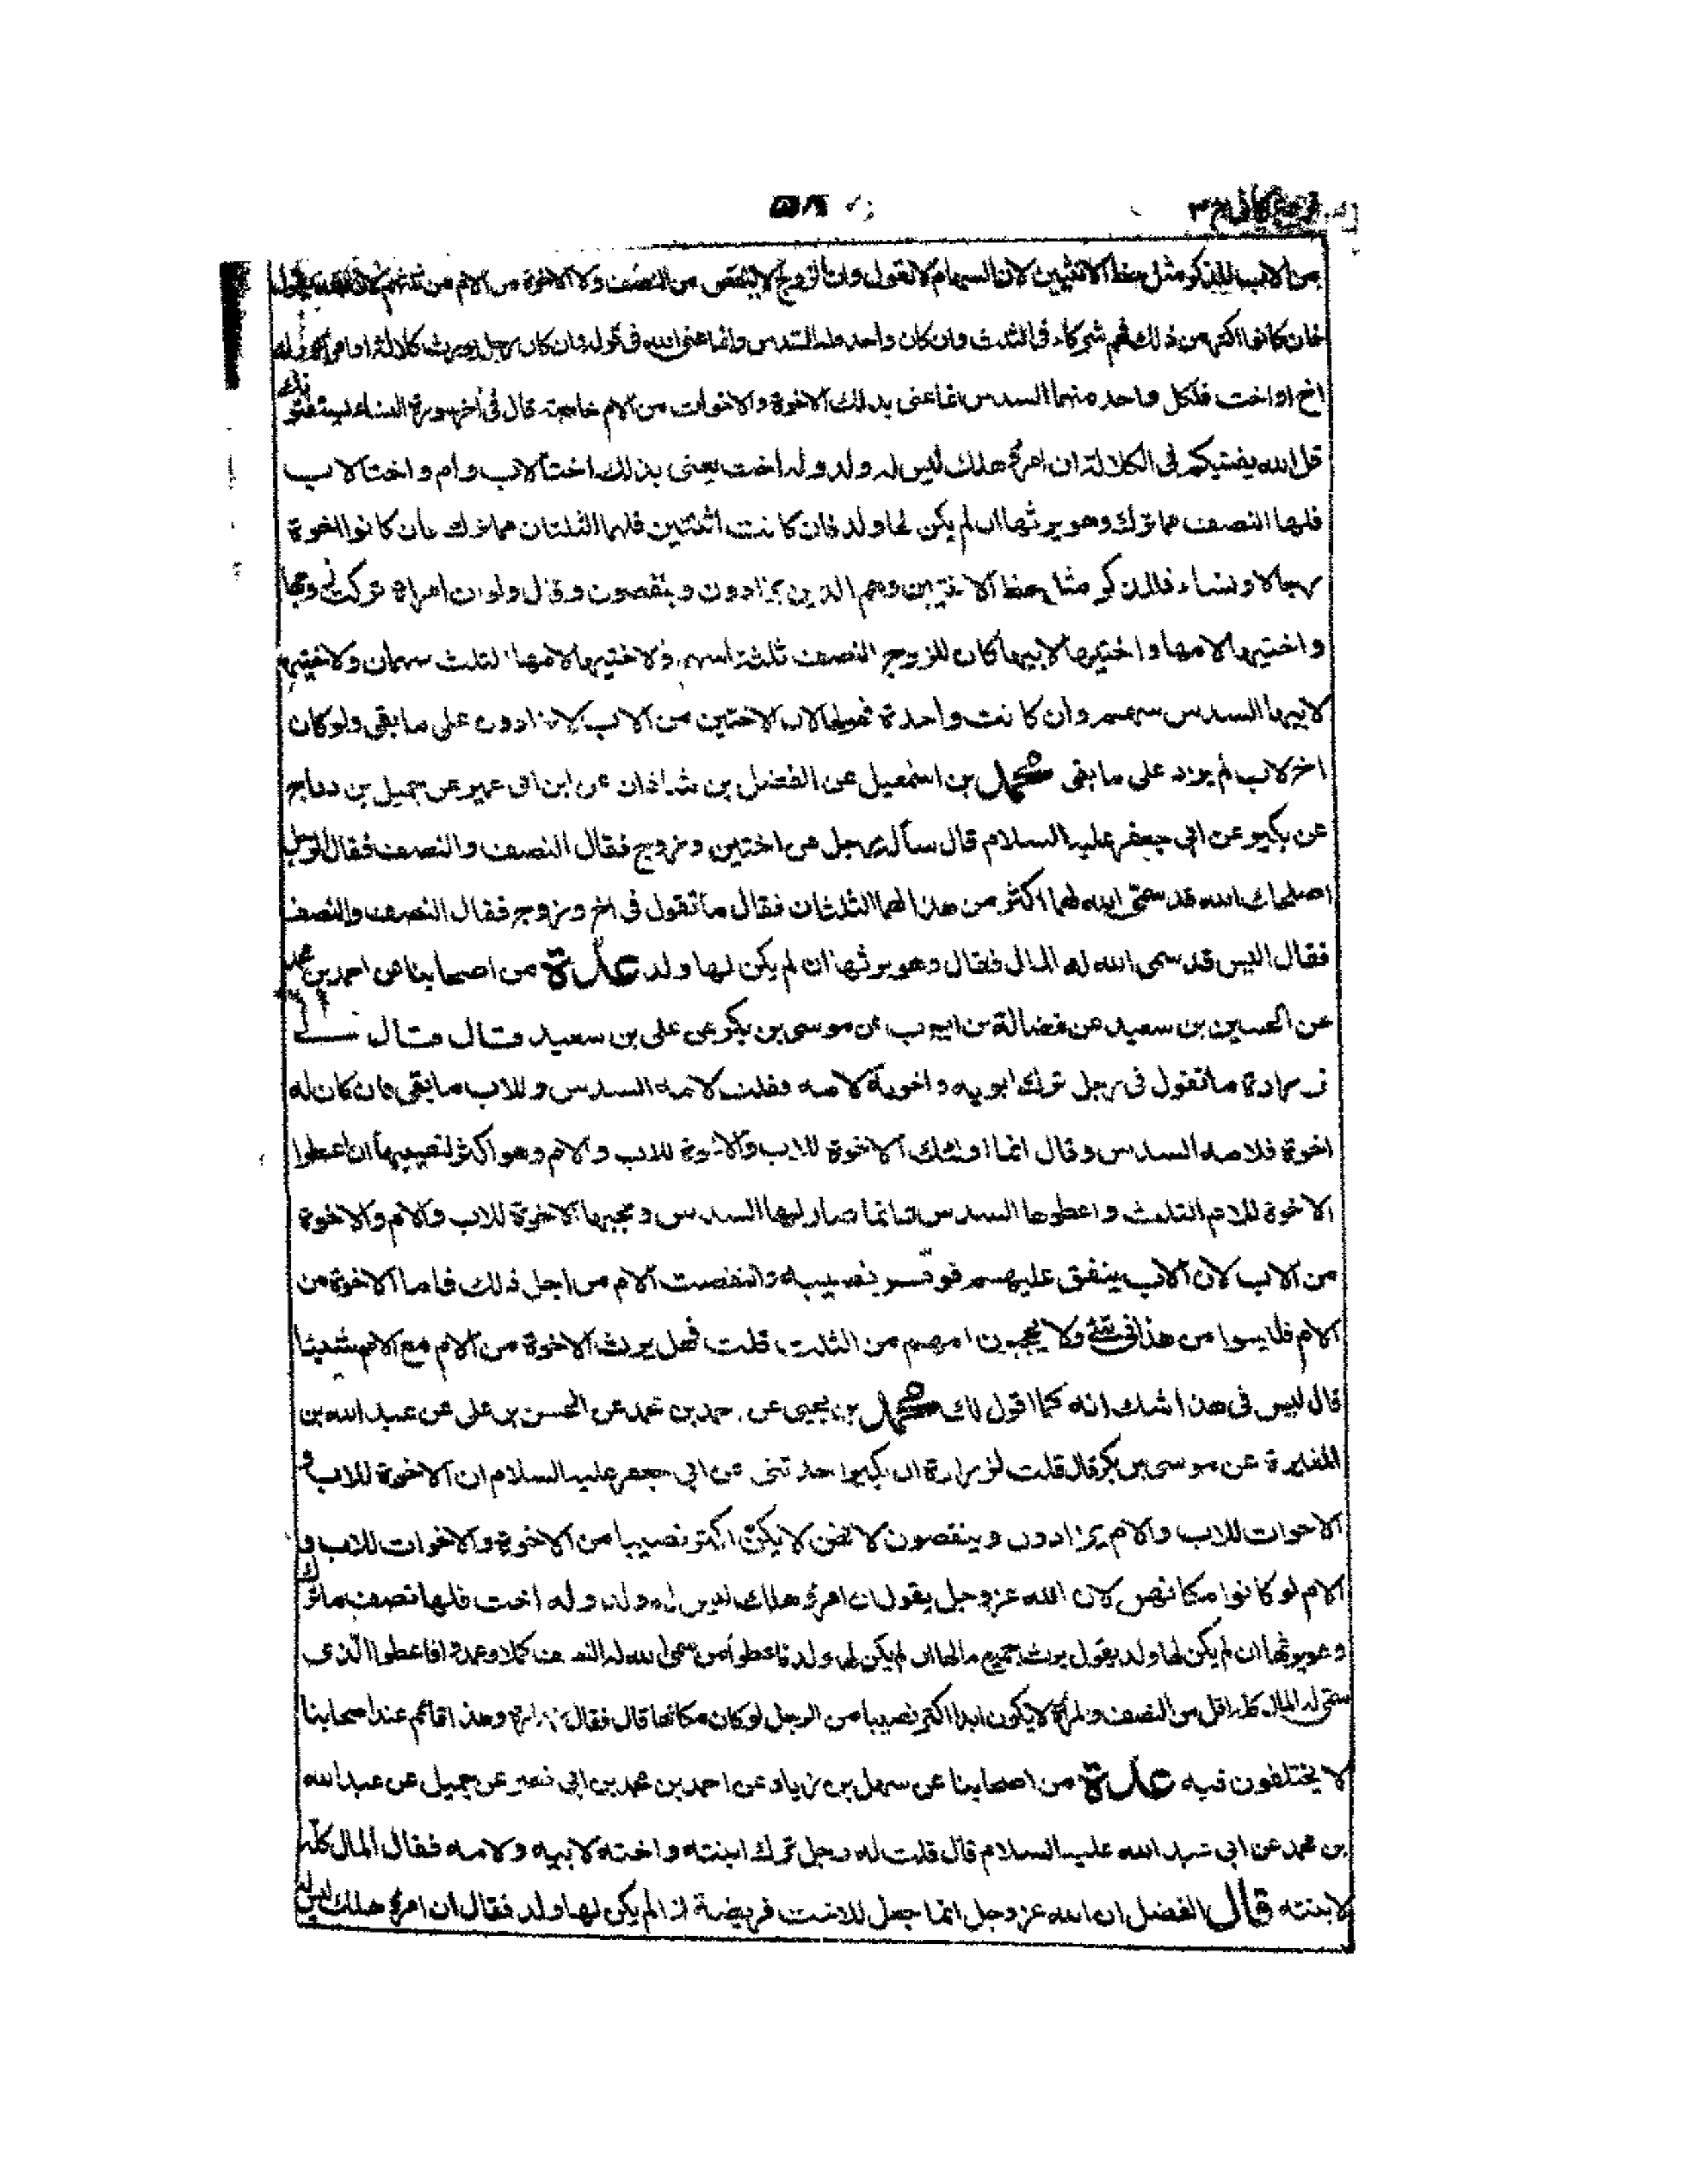 فروع كافى ج ٣
من الاب للذكر مثل حظ الانثيين لان السهام لا تعول وان الزوج لا ينقص من النصف ولا الاخوة من الام من ثلثهم لان الله يقول
فان كانوا اكثر من ذلك فهم شركاء فى الثلث وان كان واحد فله السدس وانما عنى الله فى قوله وان كان رجل يورث كلالة او امراة وله
اخ او اخت فلكل واحد منهما السدس انما عنى بذلك الاخوة والاخوات من الام خاصة وقال فى اخر سورة النساء يستفتونك
قل الله يفتيكم فى الكلالة ان امرؤ هلك ليس له ولد وله اخت يعنى بذلك اختا لاب وام واختا لاب
فلها النصف مما ترك وهو يرثها ان لم يكن لها ولد فان كانت اثنتين فلهما الثلثان مما ترك وان كانوا اخوة
رجالا ونساء فللذكر مثل حظ الانثيين وهم الذين يزادون وينقصون وقال ولو ان امراة تركت زوجها
واختيها لامها واختيها لابيها كان للزوج النصف ثلثة اسهم ولاختيها لامها الثلث سهمان ولاختيها
لابيها السدس سهم وان كانت واحدة فهو لها لان الاختين من الاب لا يزادون على ما بقى ولو كان
اخ لاب لم يزد على ما بقى محمد بن اسمعيل عن الفضل بن شاذان عن ابن ابى عمير عن جميل بن دراج
عن بكير عن ابي جعفر عليه السلام قال سأله رجل عن اختين وزوج فقال النصف والنصف فقال الرجل
اصلحك الله قد سمى الله لهما اكثر من هذا لهما الثلثان فقال ما تقول فى اخ وزوج فقال النصف والنصف
فقال اليس قد سمى الله له المال فقال وهو يرثها ان لم يكن لها ولد عدة من اصحابنا عن احمد بن محمد
عن الحسين بن سعيد عن فضالة بن ايوب عن موسى بن بكر عن على بن سعيد قال قال لى
زرارة ما تقول فى رجل ترك ابويه واخوته لامه فقلت لامه السدس وللاب ما بقى فان كان له
اخوة فلامه السدس وقال انما اولئك الاخوة للاب والاخوة للاب والام وهو اكثر لنصيبها ان اعطوا
الاخوة للام الثلث واعطوها السدس وانما صار لها السدس وحجبها الاخوة للاب والام والاخوة
من الاب لان الاب ينفق عليهم فوفر نصيبه وانتقصت الام من اجل ذلك فاما الاخوة من
الام فليسوا من هذا فى شئ ولا يحجبون امهم من الثلث قلت فهل يرث الاخوة من الام مع الام شيئا
قال ليس فى هذا شك انه كما اقول لك محمد بن يحيى عن احمد بن محمد عن الحسن بن على عن عبد الله بن
المغيرة عن موسى بن بكر قال قلت لزرارة ان بكيرا حدثنى عن ابي جعفر عليه السلام ان الاخوة للاب و
الاخوات للاب والام يزادون وينقصون لانهن لا يكن اكثر نصيبا من الاخوة والاخوات للاب و
الام لو كانوا مكانهن لان الله عز وجل يقول ان امرؤ هلك ليس له ولد وله اخت فلها نصف ما ترك
وهو يرثها ان لم يكن لها ولد يقول يرث جميع مالها ان لم يكن لها ولد فاعطوا من سمى الله له النصف كملا وعمدوا فاعطوا الذى
سمى له المال كله اقل من النصف والمرأة لا يكون ابدا اكثر نصيبا من الرجل لو كان مكانها قال فقال زرارة وهذا قائم عند اصحابنا
لا يختلفون فيه عدة من اصحابنا عن سهل بن زياد عن احمد بن محمد بن ابي نصر عن جميل عن عبد الله
بن محمد عن ابي عبد الله عليه السلام قال قلت له رجل ترك ابنته واخته لابيه ولامه فقال المال كله
لابنته قال الفضل ان الله عز وجل انما جعل للاخت فريضة اذا لم يكن لها ولد فقال ان امرؤ هلك ليس له